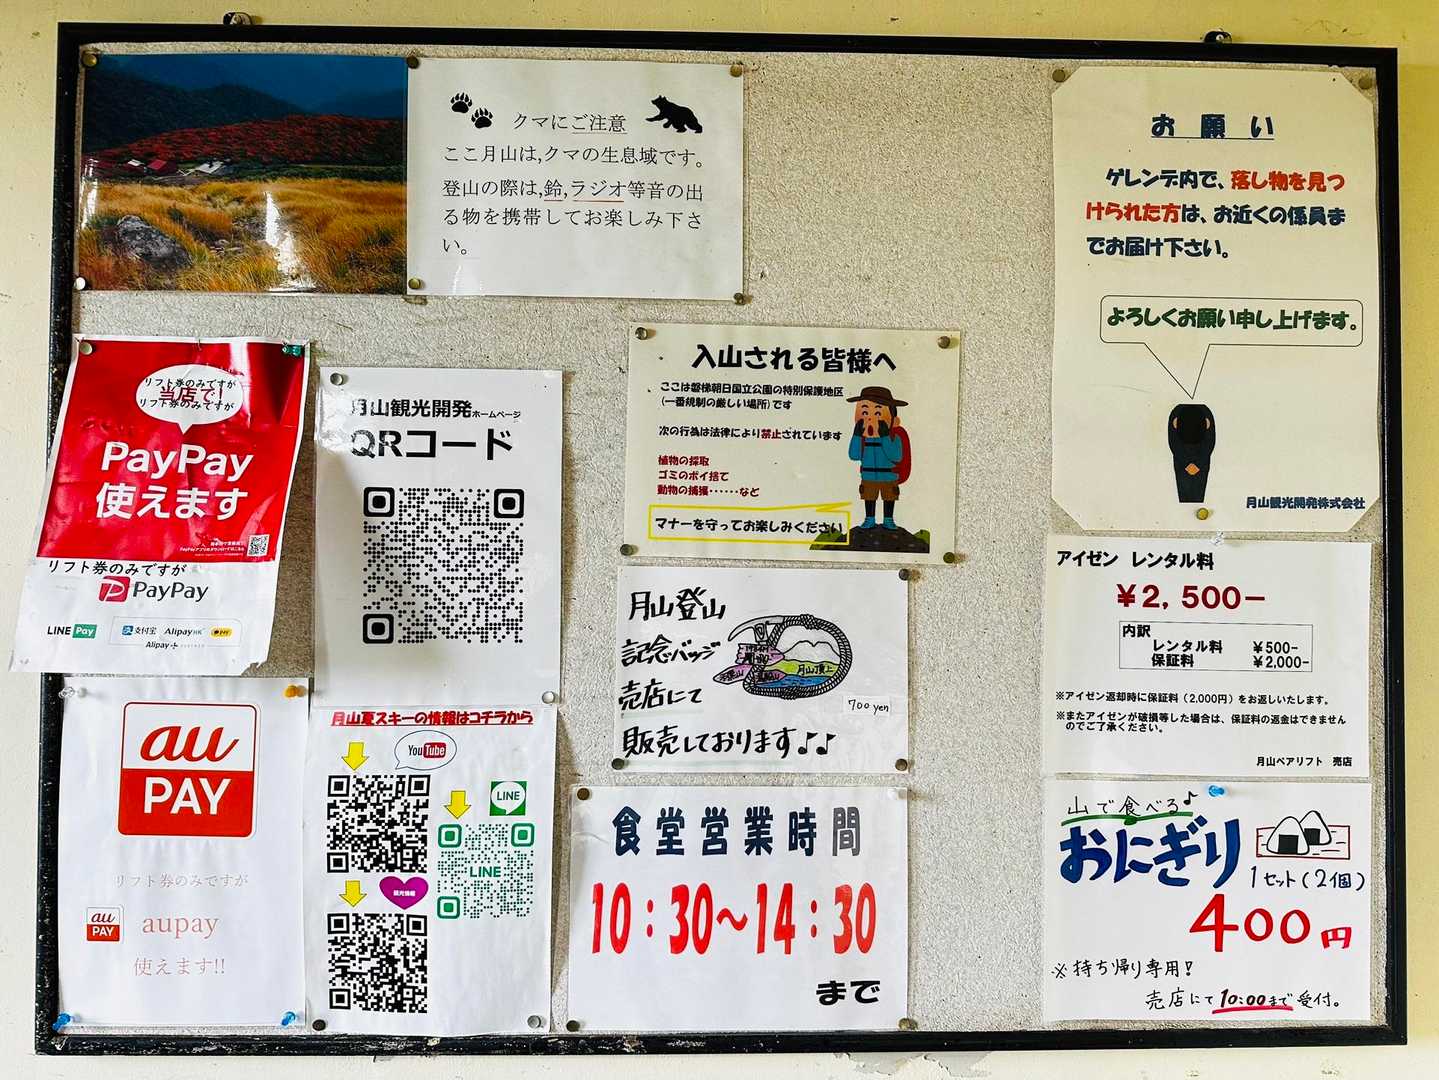 クマにご注意
ここ月山は,クマの生息域です。
登山の際は,鈴,ラジオ等音の出
る物を携帯してお楽しみ下さ
い。
お願い
ゲレンデ内で、落し物を見つ
けられた方は、お近くの係員ま
でお届け下さい。
よろしくお願い申し上げます。
月山観光開発株式会社
リフト券のみですが
当店で!
リフト券のみですが
PayPay
使えます
リフト券のみですが
PayPay
LINE Pay
支付宝 AlipayHK
Alipay+
月山観光開発ホームページ
QRコード
入山される皆様へ
ここは磐梯朝日国立公園の特別保護地区
(一番規制の厳しい場所)です
次の行為は法律により禁止されています
植物の採取
ゴミのポイ捨て
動物の捕獲……など
マナーを守ってお楽しみください
月山登山
記念バッジ
売店にて
販売しております♪♪
月山頂上
700yen
アイゼン レンタル料
¥2,500−
内訳
レンタル料 ¥500-
保証料 ¥2,000-
※アイゼン返却時に保証料(2,000円)をお返しいたします。
※またアイゼンが破損等した場合は、保証料の返金はできません
のでご了承ください。
月山ペアリフト 売店
au
PAY
リフト券のみですが
au
PAY
aupay
使えます!!
月山夏スキーの情報はコチラから
YouTube
LINE
LINE
観光情報
食堂営業時間
10:30~14:30
まで
山で食べる♪
おにぎり
1セット(2個)
400円
※持ち帰り専用!
売店にて10:00まで受付。